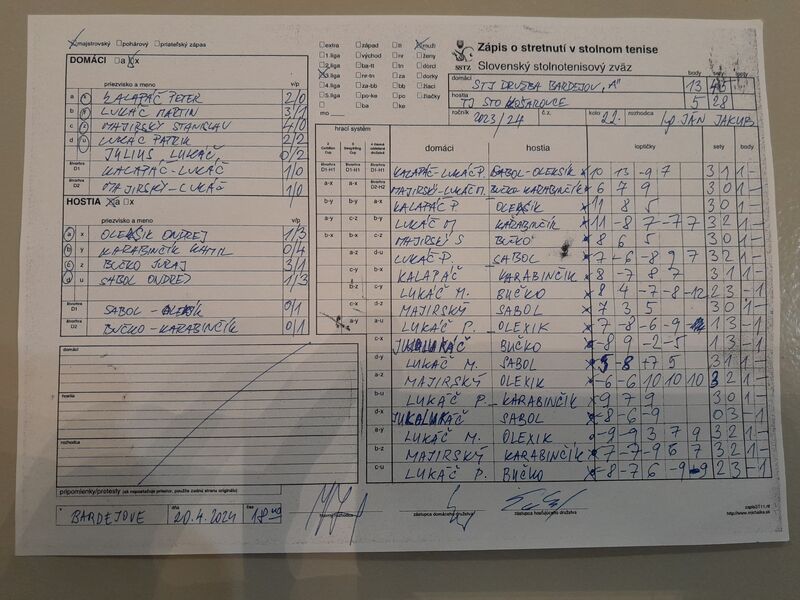 majstrovský pohárový priateľský zápas
DOMÁCI a x
priezvisko a meno v/p
a KALAPÁČ PETER 2/0
b LUKÁČ MARTIN 3/1
c MAJIRSKÝ STANISLAV 4/0
d u LUKÁČ PATRIK 2/2
JÚLIUS LUKÁČ 0/2
štvorhra D1 KALAPÁČ-LUKÁČ 1/0
štvorhra D2 MAJIRSKÝ-LUKÁČ 1/0
HOSTIA a x
priezvisko a meno v/p
a x OLEKŠIK ONDREJ 1/3
b y KARABINČÍK KAMIL 0/4
c z BUČKO JURAJ 3/1
d u SABOL ONDREJ 1/3
štvorhra D1 SABOL - OLEKŠIK 0/1
štvorhra D2 BUČKO-KARABINČÍK 0/1
domáci
hostia
rozhodca
pripomienky/protesty (ak nepostačuje priestor, použite zadnú stranu originálu)
v BARDEJOVE dňa 20.4.2024 čas 18 00
extra západ muži
1.liga východ mr ženy
2.liga ba-tt tn dorci
3.liga nr-tn za dorky
4.liga za-bb bb žiaci
5.liga po-ke po žiačky
mo ba ke
SSTZ
Zápis o stretnutí v stolnom tenise
Slovenský stolnotenisový zväz
domáci STJ DRUŽBA BARDEJOV "A" body 13 sety 45
hostia TJ STO KOŠAROVCE 5 28
ročník 2023/24 č.z. kolo 22. rozhodca Ig. JÁN JAKUB
hrací systém domáci hostia loptičky sety body
KALAPÁČ-LUKÁČ P. SABOL-OLEKSIK 10 13 -9 7 3 1 1 -
MAJIRSKÝ-LUKÁČ M. BUČKO KARABINČÍK 6 7 9 3 0 1 -
KALAPÁČ P OLEKSIK 11 8 5 3 0 1 -
LUKÁČ M KARABINČÍK 11 -8 7 -7 7 3 2 1 -
MAJIRSKÝ S BUČKO 8 6 5 3 0 1 -
LUKÁČ P. SABOL -7 -6 -8 9 7 3 2 1 -
KALAPÁČ KARABINČÍK 8 -7 8 7 3 1 1 -
LUKÁČ M. BUČKO 8 4 -7 -8 -12 2 3 - 1
MAJIRSKÝ SABOL 7 3 5 3 0 1 -
a-u LUKÁČ P. OLEXIK 7 -8 -6 -9 1 3 - 1
c-x LUKÁČ BUČKO -8 9 -2 -5 1 3 - 1
d-y LUKÁČ M. SABOL -8 +7 5 3 1 1 -
a-z MAJIRSKÝ OLEXIK -6 -6 10 10 10 3 2 1 -
b-u LUKÁČ P. KARABINČÍK 9 7 9 3 0 1 -
d-x LUKÁČ SABOL -8 -6 -9 0 3 - 1
a-y LUKÁČ M. OLEXIK -9 -9 3 7 9 3 2 1 -
b-z MAJIRSKÝ KARABINČÍK -7 7 -9 6 7 3 2 1 -
c-u LUKÁČ P. BUČKO -8 -7 6 -9 2 3 - 1
zástupca domáceho družstva
zástupca hosťujúceho družstva
http://www.michalka.sk